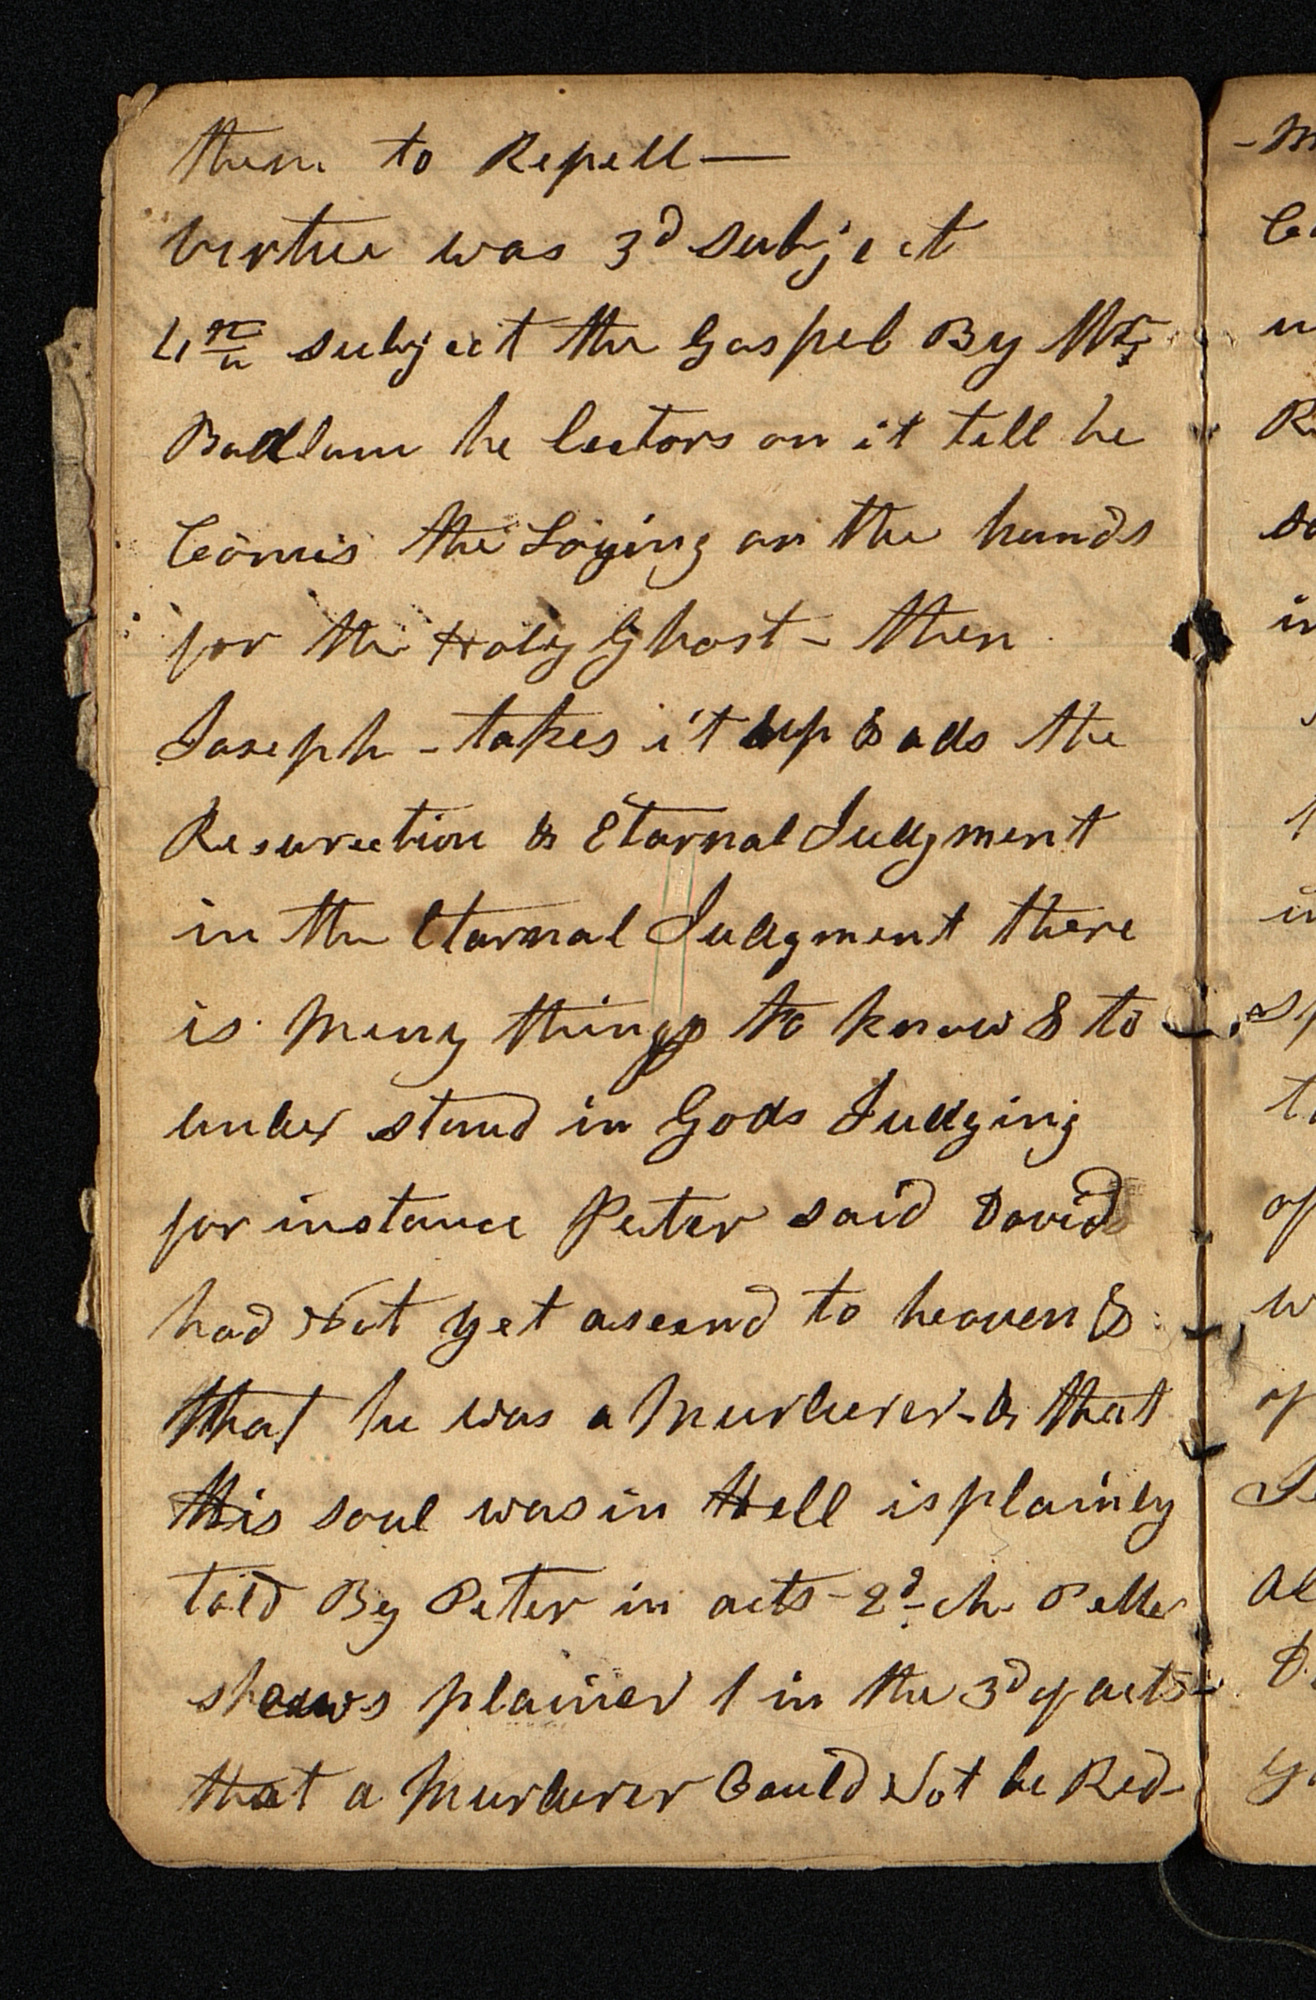 them to Repell—
virtue was 3d subject
4th subject the Gospel By Mr
Badlam he lectors on it till he
Comis the Loying on the hands
for the Holy Ghost - then
Joseph - takes it up & ads the
Resurection & Etarnal Judgment
in the Etarnal Judgment there
is Meny things to know & to
under stand in Gods Judging
for instance Peter said David
had Not yet asend to heaven &
that he was a Murderer - & that
his soul was in Hell is plainly
told By Peter in acts - 2d ch.
shows plainer in the 3d of acts
that a Murderer Could Not be Red-
-M